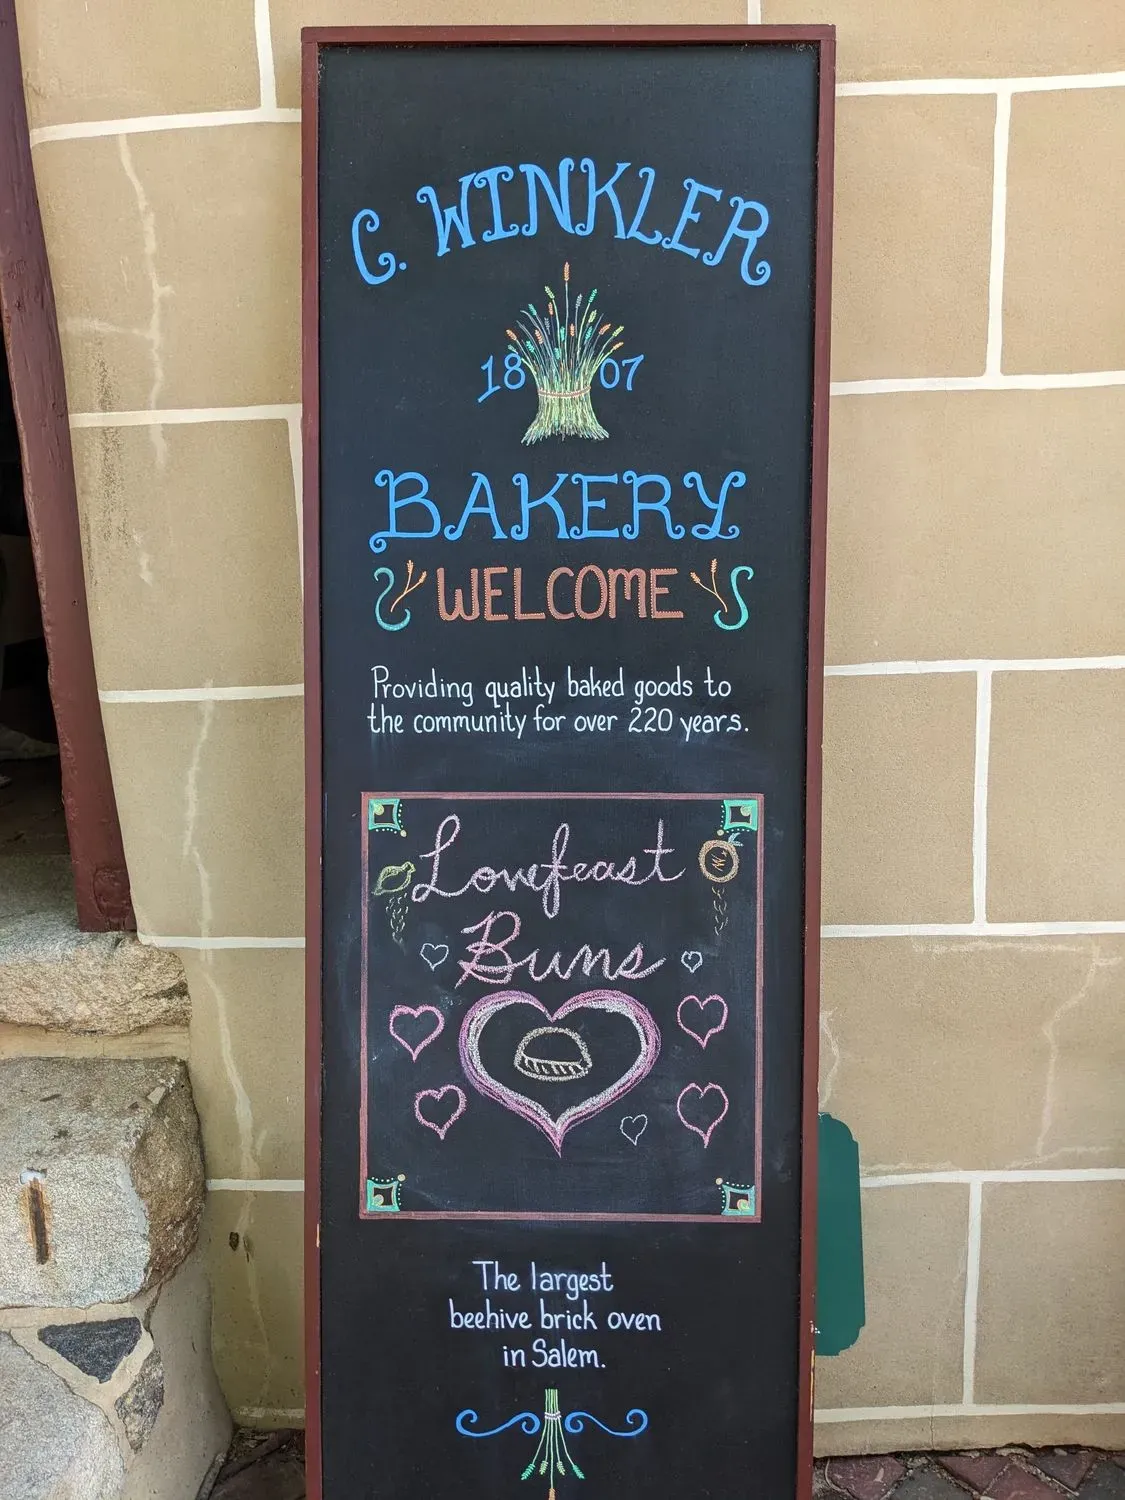 C. WINKLER
1807
BAKERY
WELCOME
Providing quality baked goods to
the community for over 220 years.
Lovefeast
Buns
The largest
beehive brick oven
in Salem.